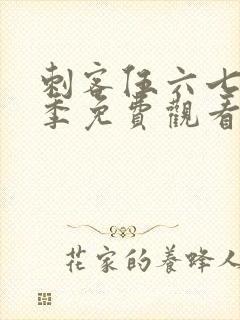 刺客伍六七
季免費觀看
花家的養蜂人